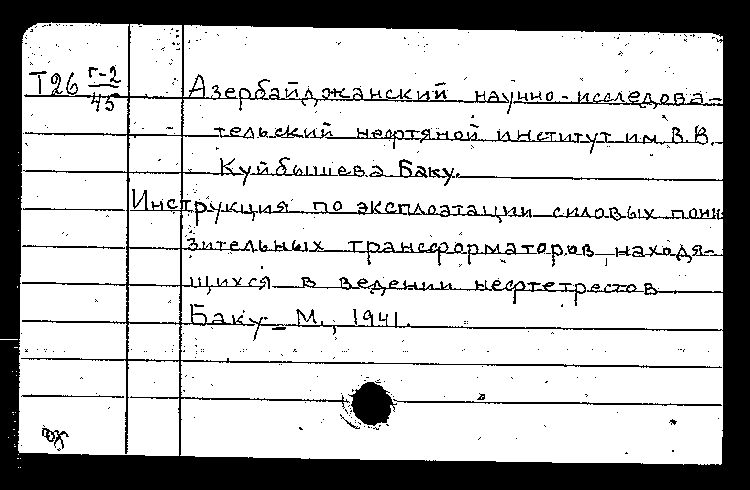 Т26 г-2/45 Азербайджанский научно-исследова-
тельский нефтяной институт им. В.В.
Куйбышева Баку.
Инструкция по эксплоатации силовых пони
зительных трансформаторов, находя-
щихся в ведении нефтетрестов
Баку - М., 1941.